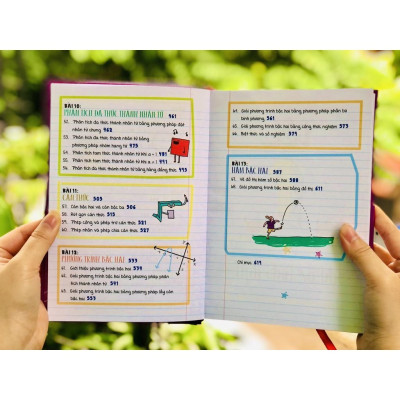 BÀI 10:
PHÂN TÍCH ĐA THỨC THÀNH NHÂN TỬ 461
52. Phân tích đa thức thành nhân tử bằng phương pháp đặt
nhân tử chung 462
53. Phân tích đa thức thành nhân tử bằng
phương pháp nhóm hạng tử 473
54. Phân tích tam thức thành nhân tử khi a = 1 481
55. Phân tích tam thức thành nhân tử khi a ≠ 1 487
56. Phân tích đa thức thành nhân tử bằng hằng đẳng thức 493
BÀI 11:
CĂN THỨC 505
57. Căn bậc hai và căn bậc ba 506
58. Rút gọn căn thức 513
59. Phép cộng và phép trừ căn thức 521
60. Phép nhân và phép chia căn thức 527
BÀI 12:
PHƯƠNG TRÌNH BẬC HAI 533
61. Giới thiệu phương trình bậc hai 534
62. Giải phương trình bậc hai bằng phương pháp phân
tích thành nhân tử 541
63. Giải phương trình bậc hai bằng phương pháp lấy căn
bậc hai 553
64. Giải phương trình bậc hai bằng phương pháp phần bù
bình phương 561
65. Giải phương trình bậc hai bằng công thức nghiệm 573
66. Biệt thức và số nghiệm 579
BÀI 13:
HÀM BẬC HAI 587
67. Vẽ đồ thị hàm số bậc hai 588
68. Giải phương trình bậc hai bằng đồ thị 611
Chỉ mục 619